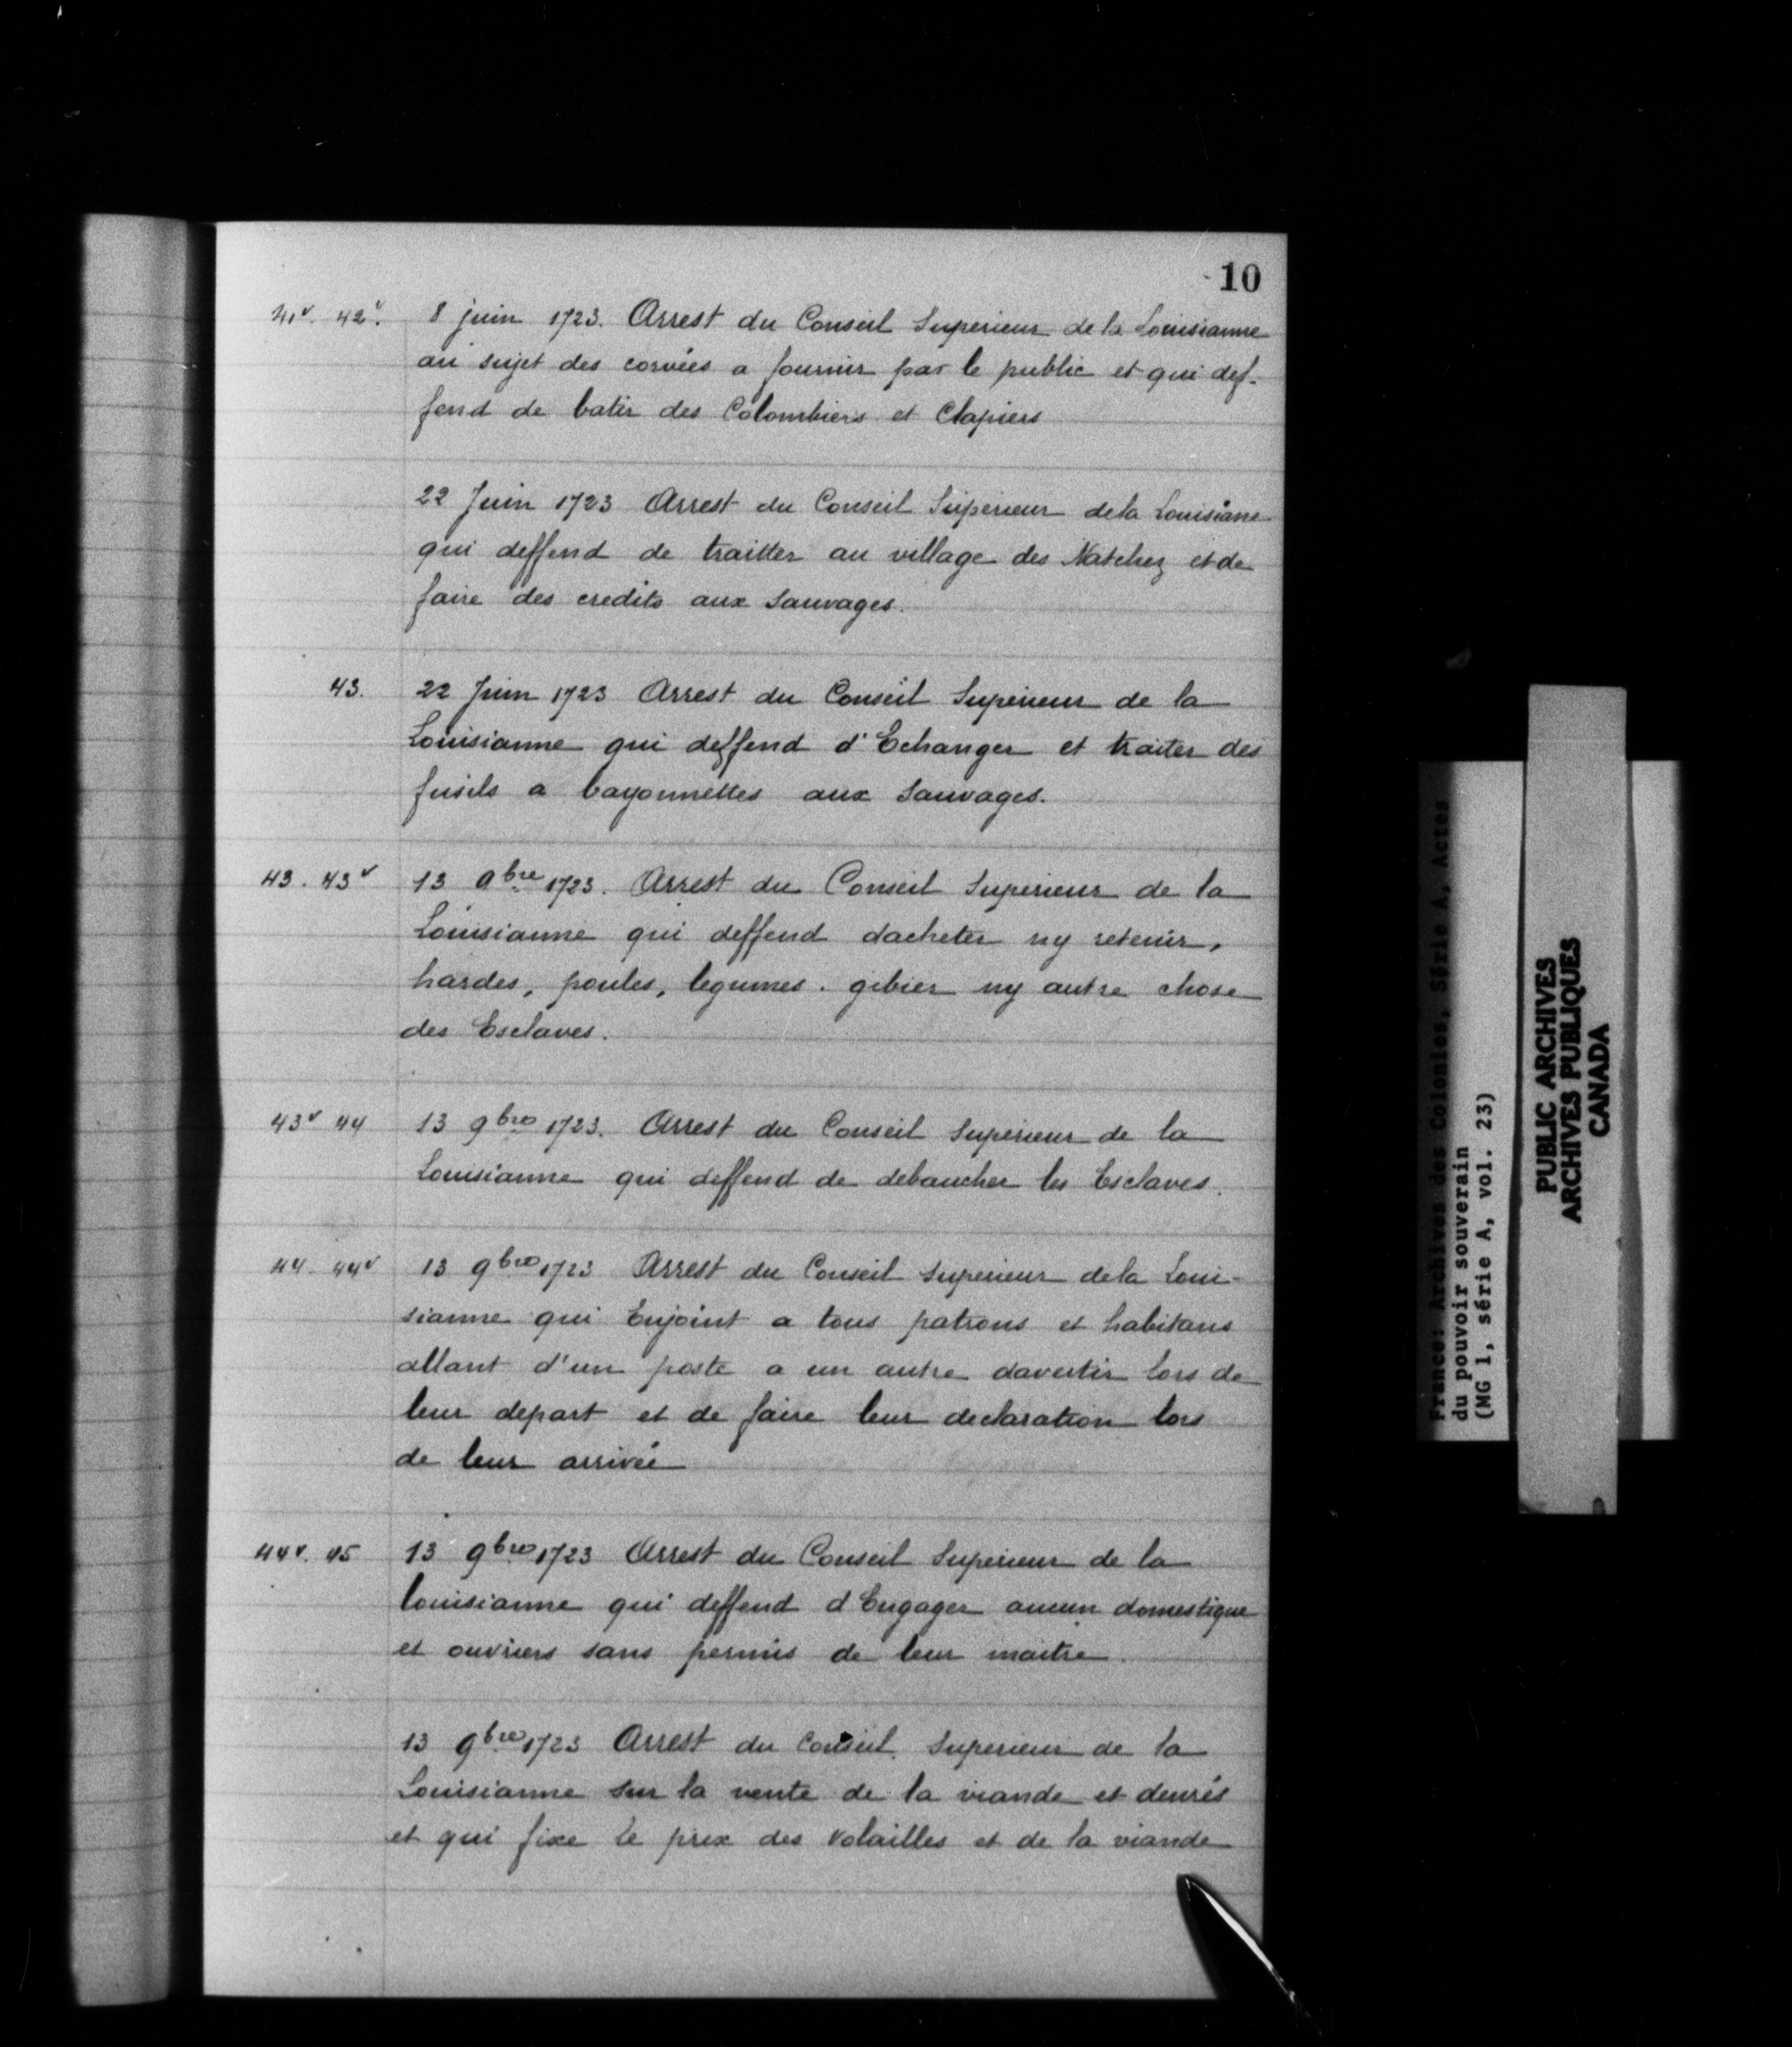 10
41v. 42v. 8 juin 1723. Arrest du Conseil Superieur de la Louisianne
au sujet des corvées a fournir par le public et qui def-
fend de batir des Colombiers et Clapiers
22 Juin 1723 Arrest du Conseil Superieur de la Louisiane
qui deffend de traitter au village des Natchez et de
faire des credits aux Sauvages.
43. 22 Juin 1723 Arrest du Conseil Superieur de la
Louisianne qui deffend d'Echanger et traiter des
fusils a bayonnettes aux Sauvages.
43. 43v 13 9bre 1723. Arrest du Conseil Superieur de la
Louisianne qui deffend dacheter ny retenir,
hardes, poules, legumes. gibier ny autre chose
des Esclaves.
43v 44 13 9bre 1723. Arrest du Conseil Superieur de la
Louisianne qui deffend de debaucher les Esclaves.
44. 44v 13 9bre 1723 Arrest du Conseil Superieur de la Loui-
sianne qui Enjoint a tous patrons et habitans
allant d'un poste a un autre davertir lors de
leur depart et de faire leur declaration lors
de leur arrivée
44v. 45 13 9bre 1723 Arrest du Conseil Superieur de la
Louisianne qui deffend d'Engager aucun domestique
et ouvriers sans permis de leur maitre.
13 9bre 1723 Arrest du Conseil Superieur de la
Louisianne sur la vente de la viande et denrés
et qui fixe le prix des volailles et de la viande
France: Archives des Colonies, Série A, Actes
du pouvoir souverain
(MG 1, série A, vol. 23)
PUBLIC ARCHIVES
ARCHIVES PUBLIQUES
CANADA